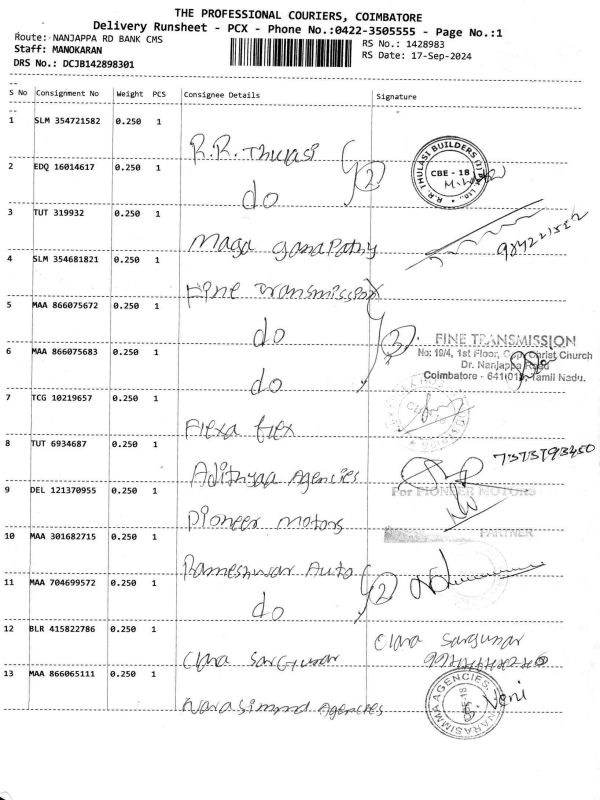 THE PROFESSIONAL COURIERS, COIMBATORE
Delivery Runsheet - PCX - Phone No.:0422-3505555 - Page No.:1
Route: NANJAPPA RD BANK CMS
Staff: MANOKARAN
DRS No.: DCJB142898301
RS No.: 1428983
RS Date: 17-Sep-2024
S No Consignment No Weight PCS Consignee Details Signature
1 SLM 354721582 0.250 1 R.R. Thulasi
R.R. THULASI BUILDERS (I) LTD.,
CBE - 18
2 EDQ 16014617 0.250 1 do 2
3 TUT 319932 0.250 1 Maga ganapathy
4 SLM 354681821 0.250 1 Fine Transmission
5 MAA 866075672 0.250 1 do 3
FINE TRANSMISSION
No: 19/4, 1st Floor, Opp. Christ Church
Dr. Nanjappa Road
Coimbatore - 641018, Tamil Nadu.
6 MAA 866075683 0.250 1 do
7 TCG 10219657 0.250 1 Flexa flex
8 TUT 6934687 0.250 1 Adithyaa Agencies
9 DEL 121370955 0.250 1 Pioneer motors
For PIONEER MOTORS
PARTNER
10 MAA 301682715 0.250 1 Rameshwar Auto
11 MAA 704699572 0.250 1 do 2
12 BLR 415822786 0.250 1 Clara Sargunar Clara Sargunar
13 MAA 866065111 0.250 1 Narasimma Agencies
NARASIMMA AGENCIES
Veni